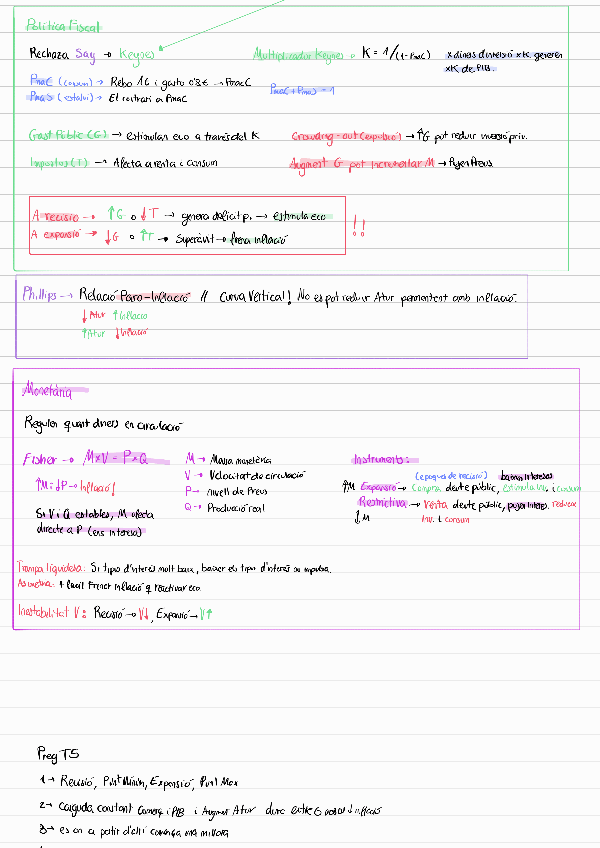 Política Fiscal
Rechaza Say → Keynes
Multiplicador Keynes → K = 1/(1-PmaC)
x diners d'inversió x K generen
x K de PIB.
PmaC (consum) → Rebo 1€ i gasto 0'8€ → PmaC
PmaS (estalvi) → El contrari a PmaC
PmaC + PmaS = 1
Gast Públic (G) → estimulan eco a través del K
Crowding-out (expulsió) → ↑G pot reduir inversió priv.
Impostos (T) → Afecta a renta i consum
Augment G pot incrementar M → Pujen Preus
A recisió → ↑G o ↓T → genera dèficit p. → estimula eco
A expansió → ↓G o ↑T → Superàvit → frena inflació
!!
Phillips → Relació Paro-Inflació // Curva Vertical! No es pot reduir Atur permanentment amb inflació.
↓Atur ↑Inflació
↑Atur ↓Inflació
Monetària
Regulen quant diners en circulació
Fisher → M×V = P×Q
M → Massa monetària
V → Velocitat de circulació
P → nivell de Preus
Q → Producció real
Instruments:
(epoques de recisió) baixos interesos
↑M Expansió → Compra deute públic, estimula inv. i consum
Restrictiva → Venta deute públic, pujen interes. redueix
↓M inv. i consum
Si V i Q estables, M afecta
directe a P (ens interesa)
Trampa liquidesa: Si tipo d'interès molt baix, baixar els tipo d'interès no impulsa.
Asimetria: + facil Frenar Inflació q reactivar eco.
Inestabilitat V: Recisió → V↓, Expansió → V↑
Preg T5
1 → Recisió, Punt Mínim, Expansió, Punt Max
2 → Caiguda constant Comerç i PIB i Augment Atur dure entre 6
3 → es on a partir d'allí comença una millora